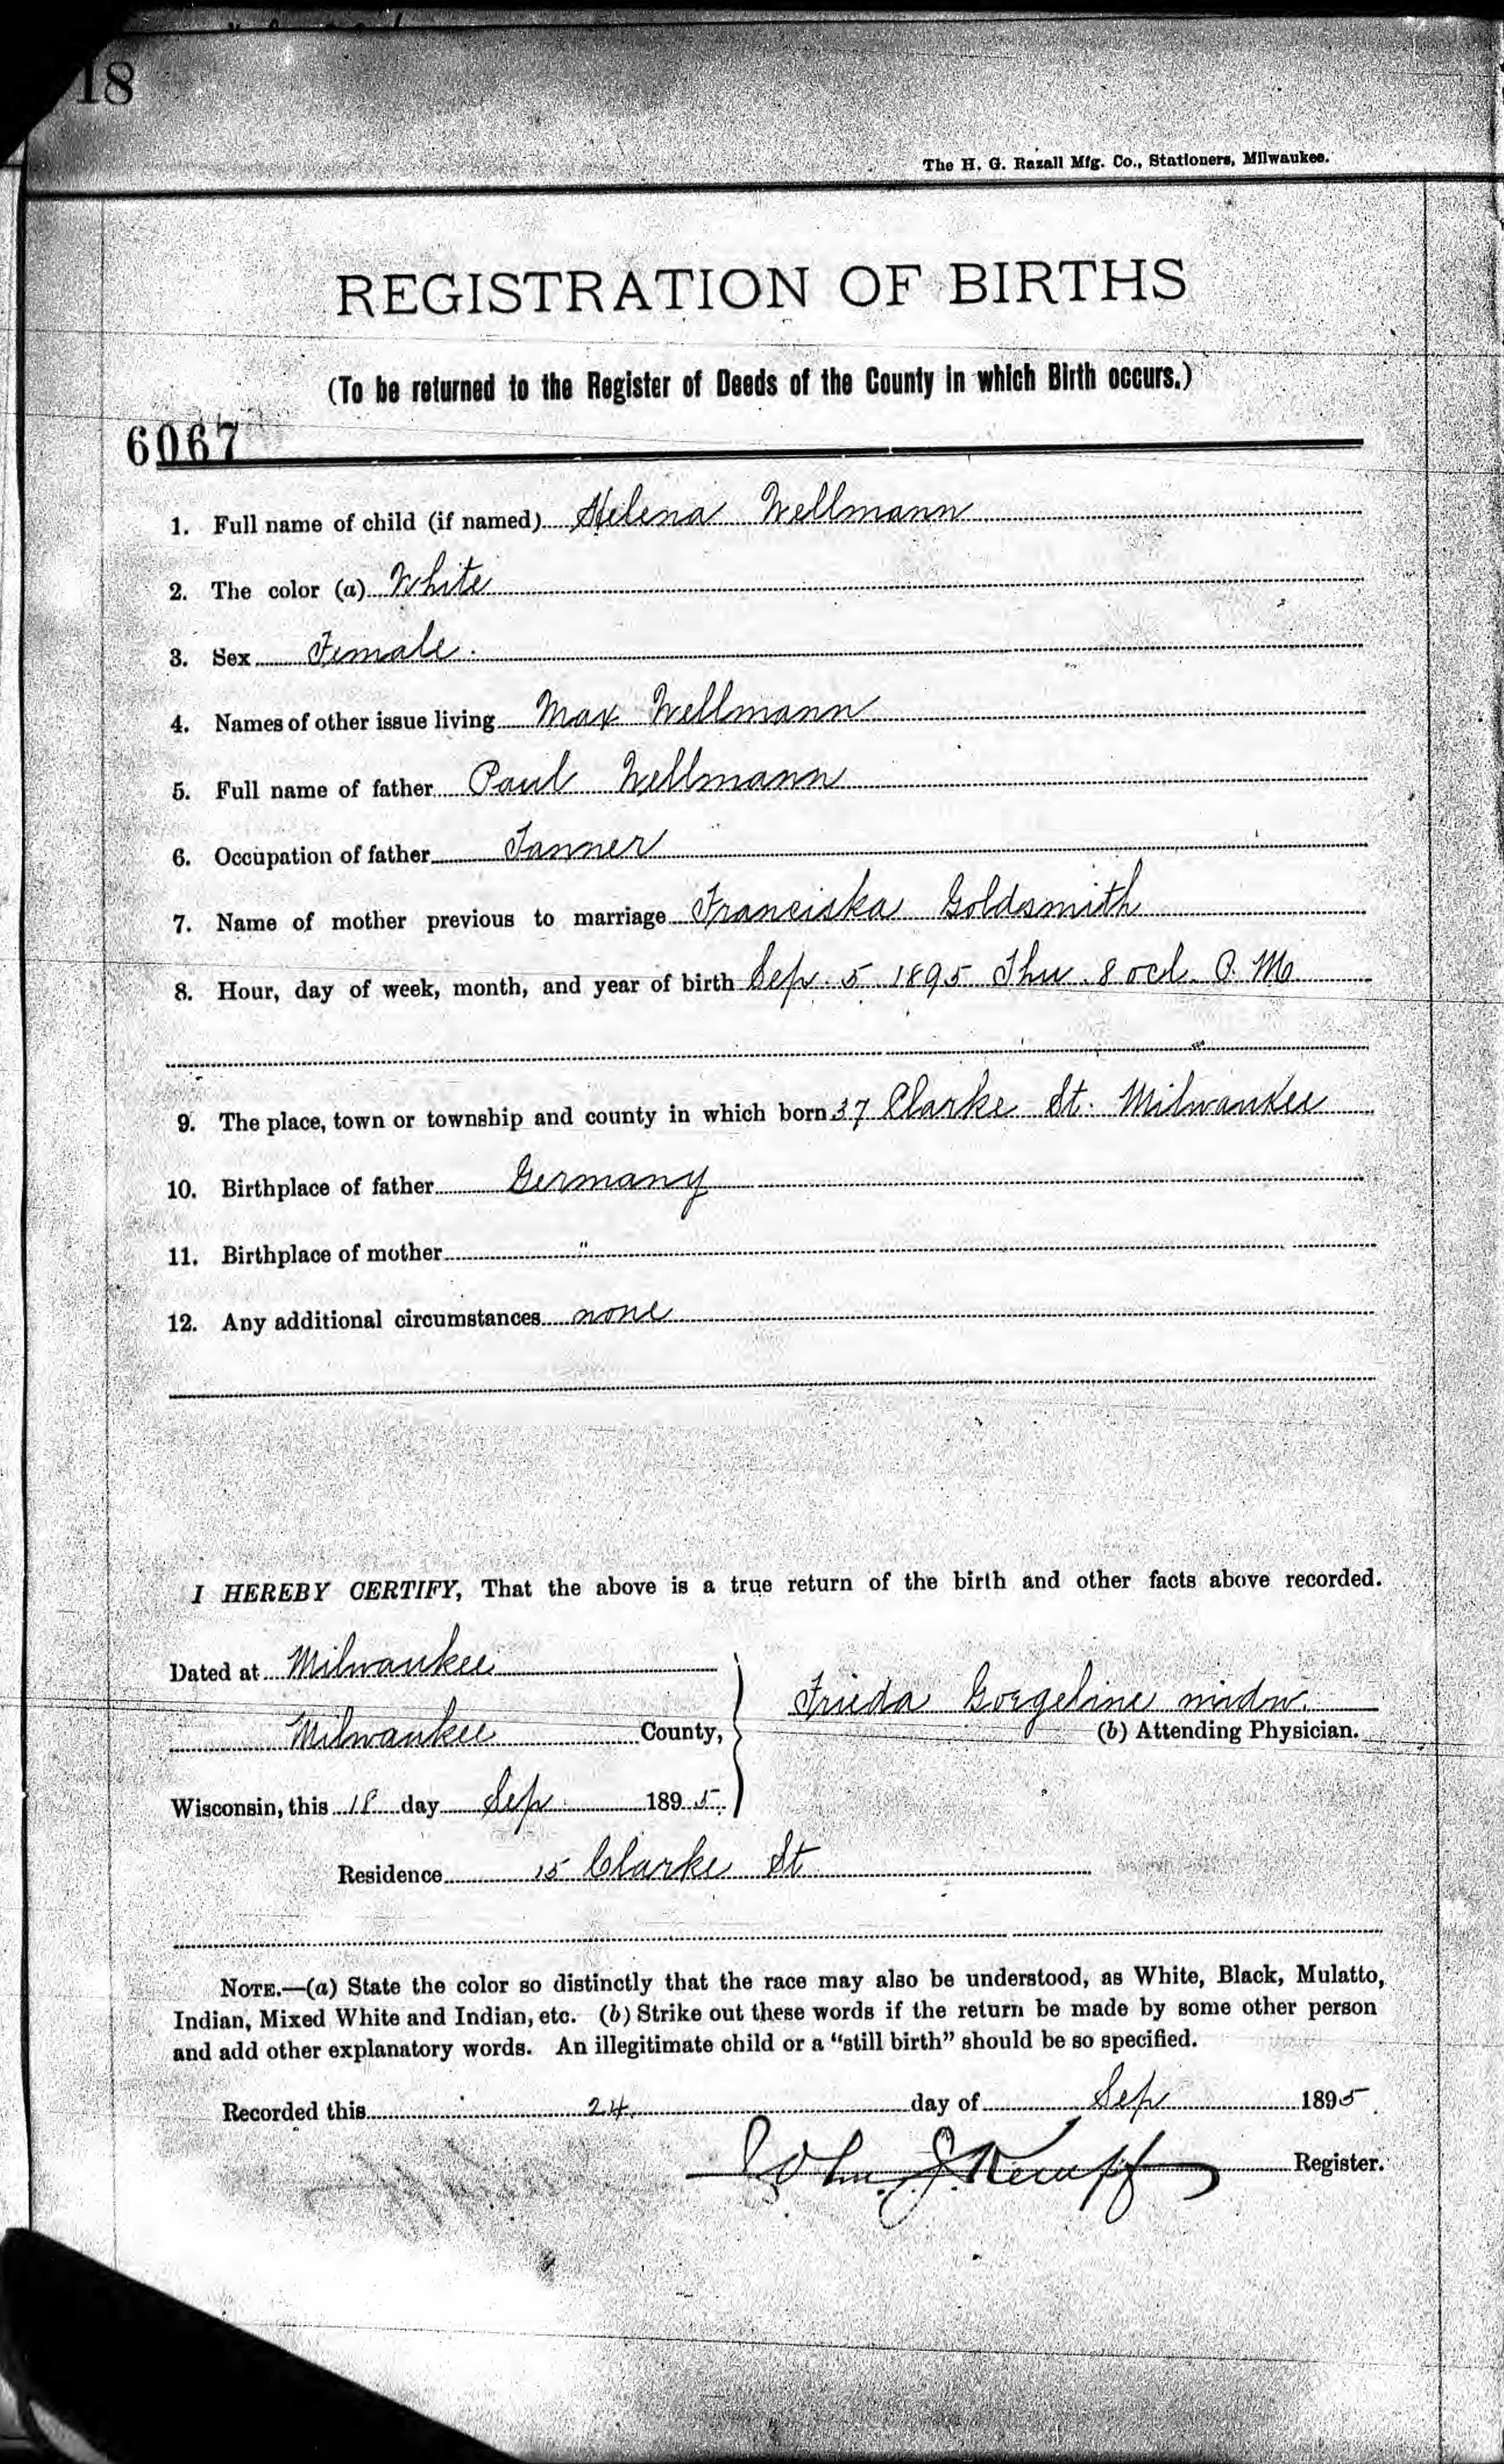 18
The H. G. Razall Mfg. Co., Stationers, Milwaukee.
REGISTRATION OF BIRTHS
(To be returned to the Register of Deeds of the County in which Birth occurs.)
6067
1. Full name of child (if named) Helena Wellmann
2. The color (a) White
3. Sex Female.
4. Names of other issue living Max Wellmann
5. Full name of father Paul Wellmann
6. Occupation of father Tanner
7. Name of mother previous to marriage Franciska Goldsmith
8. Hour, day of week, month, and year of birth Sep. 5 1895 Thu. 8 ocl. P. M
9. The place, town or township and county in which born 37 Clarke St. Milwaukee
10. Birthplace of father Germany
11. Birthplace of mother "
12. Any additional circumstances none
I HEREBY CERTIFY, That the above is a true return of the birth and other facts above recorded.
Dated at Milwaukee
Milwaukee County,
Frieda midw.
(b) Attending Physician.
Wisconsin, this 18 day Sep 1895.
Residence 15 Clarke St
NOTE.—(a) State the color so distinctly that the race may also be understood, as White, Black, Mulatto,
Indian, Mixed White and Indian, etc. (b) Strike out these words if the return be made by some other person
and add other explanatory words. An illegitimate child or a "still birth" should be so specified.
Recorded this 24. day of Sep 1895.
John J. Kempf Register.